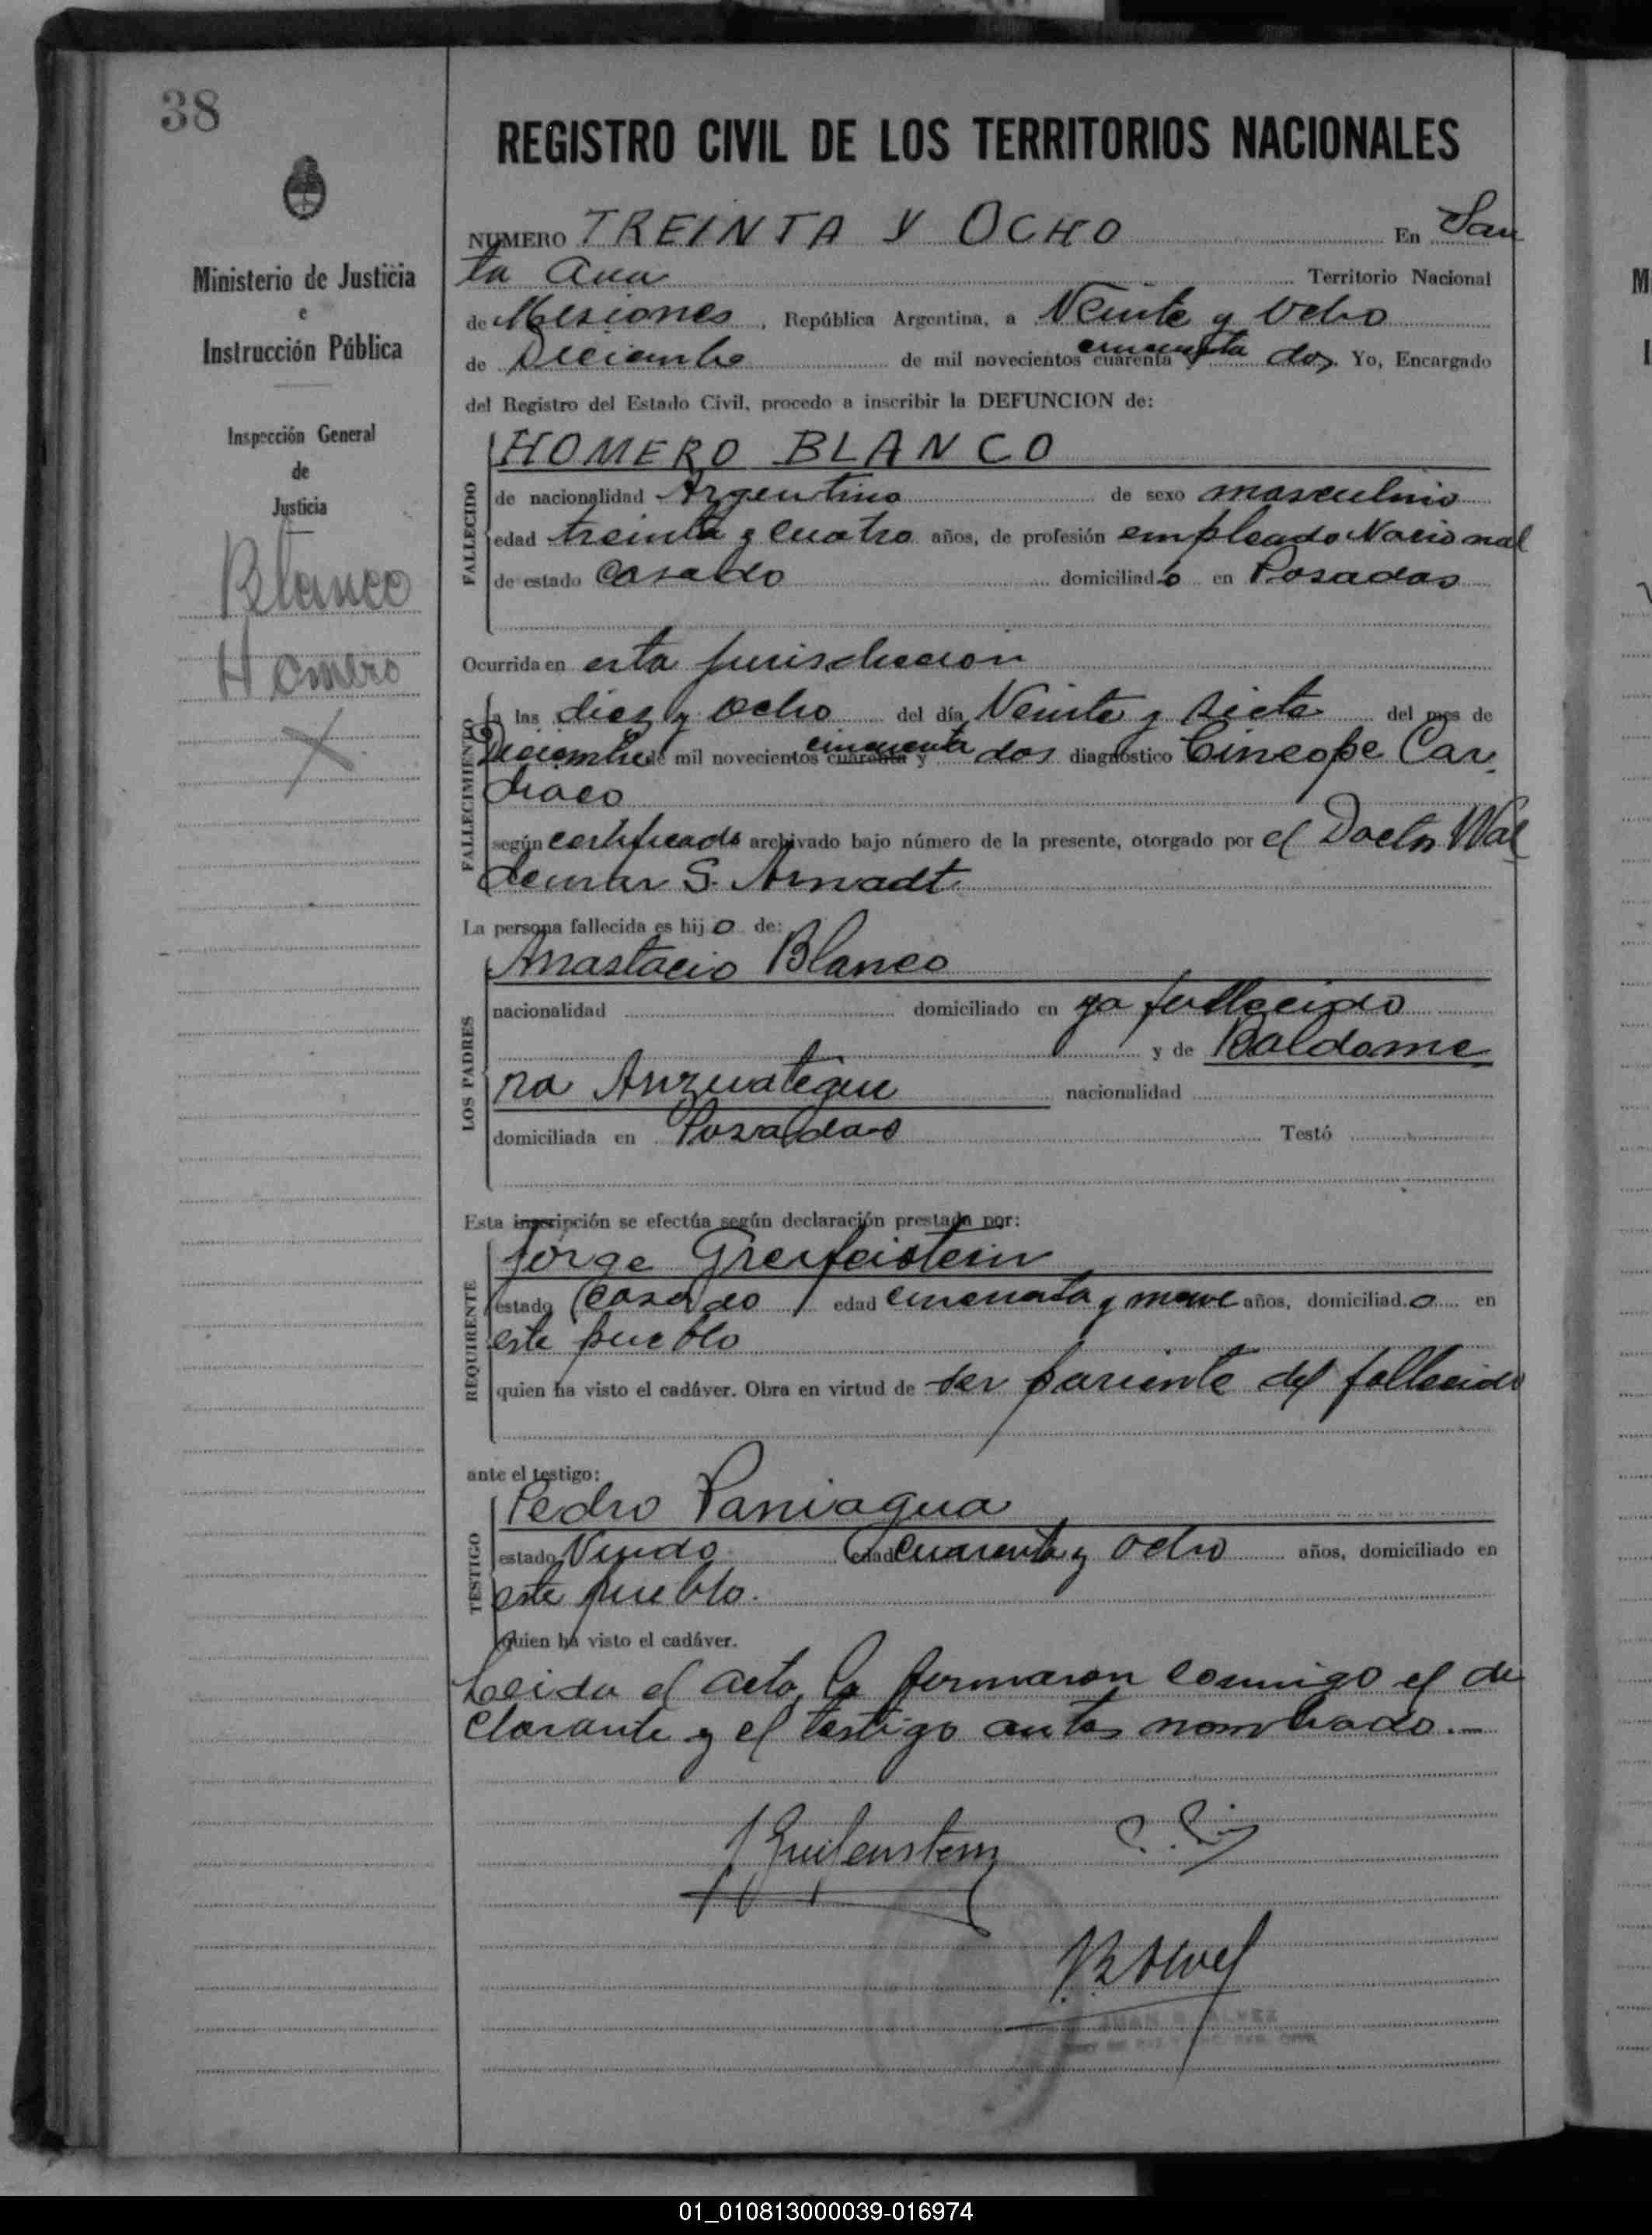 38
REGISTRO CIVIL DE LOS TERRITORIOS NACIONALES
Ministerio de Justicia
e
Instrucción Pública
Inspección General
de
Justicia
Blanco
Homero
X
NUMERO TREINTA Y OCHO En San
ta Ana Territorio Nacional
de Misiones, República Argentina, a Veinte y Ocho
de Diciembre de mil novecientos cuarenta y cincuenta dos. Yo, Encargado
del Registro del Estado Civil, procedo a inscribir la DEFUNCION de:
FALLECIDO
HOMERO BLANCO
de nacionalidad Argentino de sexo masculino
edad treinta y cuatro años, de profesión empleado Nacional
de estado Casado domiciliado en Posadas
Ocurrida en esta Jurisdiccion
FALLECIMIENTO
a las diez y ocho del día Veinte y siete del mes de
Diciembre de mil novecientos cuarenta y cincuenta dos diagnóstico Cincope Car
diaco
según certificado archivado bajo número de la presente, otorgado por el Doctor Wal
demar S. Arnadt
La persona fallecida es hijo de:
LOS PADRES
Anastacio Blanco
nacionalidad domiciliado en ya fallecido
y de Baldome
ra nacionalidad
domiciliada en Posadas Testó
Esta inscripción se efectúa según declaración prestada por:
REQUIRENTE
Jorge
estado Casado edad cincuenta y nueve años, domiciliado en
este pueblo
quien ha visto el cadáver. Obra en virtud de ser pariente del fallecido
ante el testigo:
TESTIGO
Pedro Paniagua
estado Viudo edad cuarenta y ocho años, domiciliado en
este pueblo.
quien ha visto el cadáver.
Leida el acta, la firmaron conmigo el de
clarante y el testigo antes nombrado.—
JUAN B. ALVEZ
01_010813000039-016974